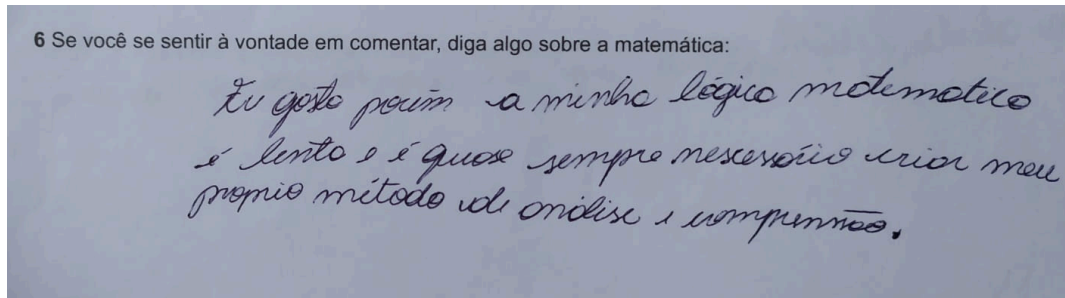 6 Se você se sentir à vontade em comentar, diga algo sobre a matemática:
Eu gosto porém a minha lógica matematica
é lenta e é quase sempre nescessário criar meu
proprio método de análise e comprenssão.